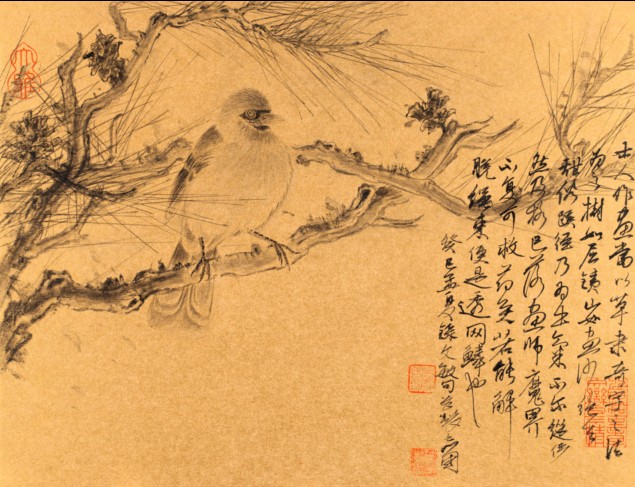 士人作畫當以草隸奇字之法
為之樹如屈鐵山如畫沙絕去
甜俗蹊徑乃為士氣不尔縱儼
然及格已落畫師魔界
不复可救药矣若能解
脫繩束便是透网鱗也
癸巳孟夏錄文敏句